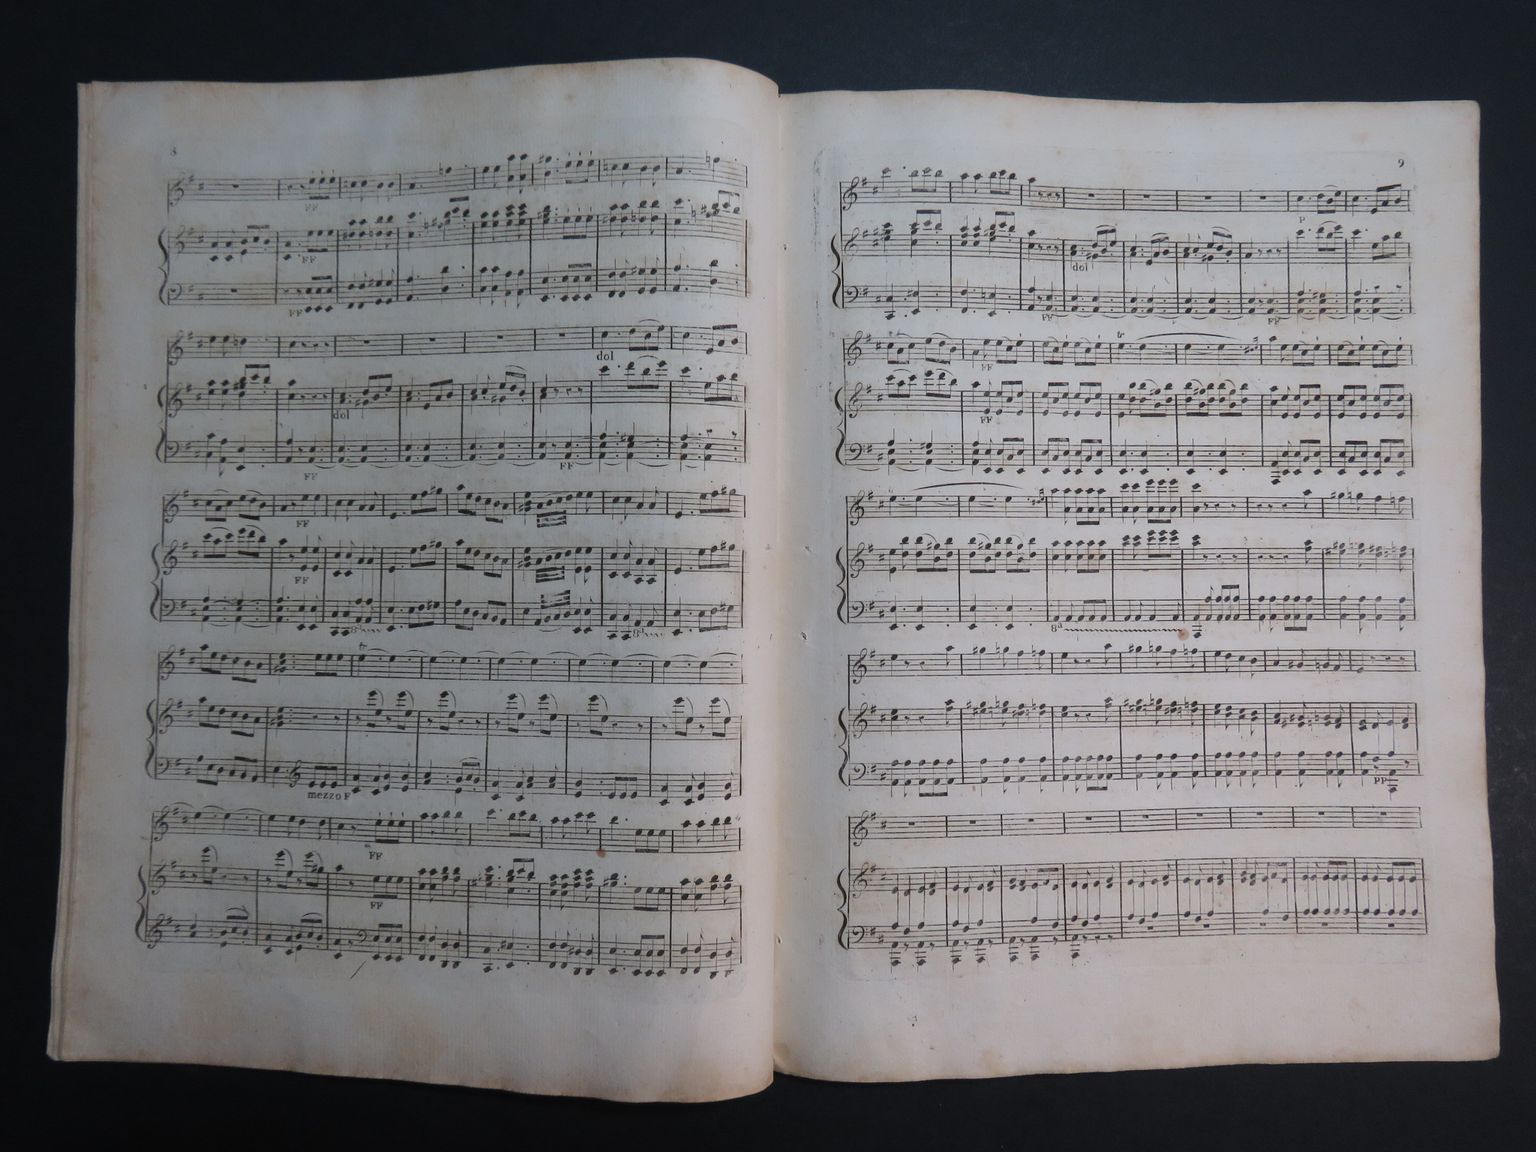 8
FF
FF
FF
dol
dol
FF
FF
FF
FF
8ª
8ª
tr
mezzo F
FF
FF
9
P
dol
FF
FF
tr
FF
FF
8ª
PP